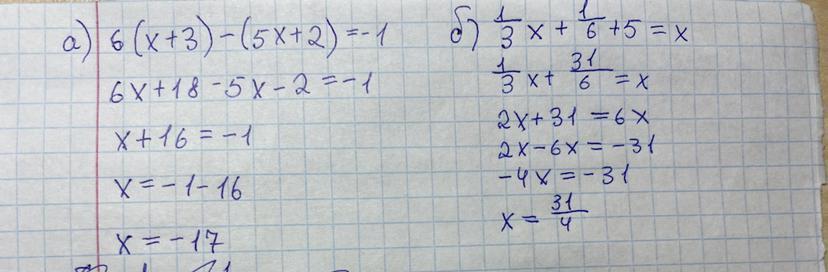 а) 6(x+3)-(5x+2)=-1
6x+18-5x-2=-1
x+16=-1
x=-1-16
x=-17
б) 1/3 x + 1/6 + 5 = x
1/3 x + 31/6 = x
2x+31=6x
2x-6x=-31
-4x=-31
x = 31/4